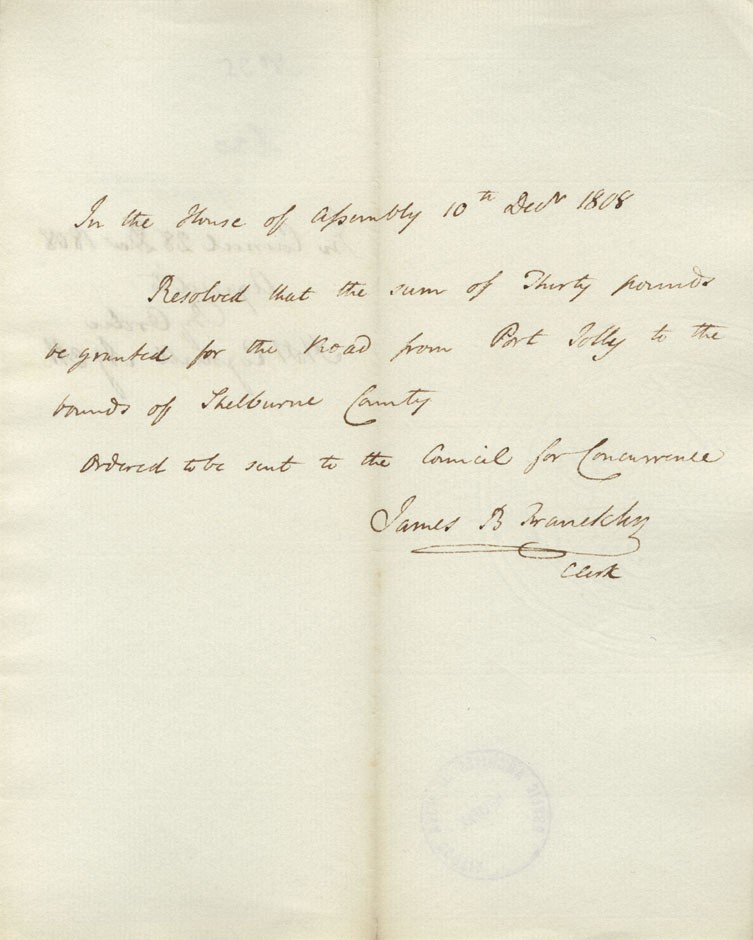 In the House of Assembly 10th Decr 1808
Resolved that the sum of Thirty pounds
be granted for the Road from Port Jolly to the
bounds of Shelburne County
Ordered to be sent to the Council for Concurrence
James B Franckly
Clerk